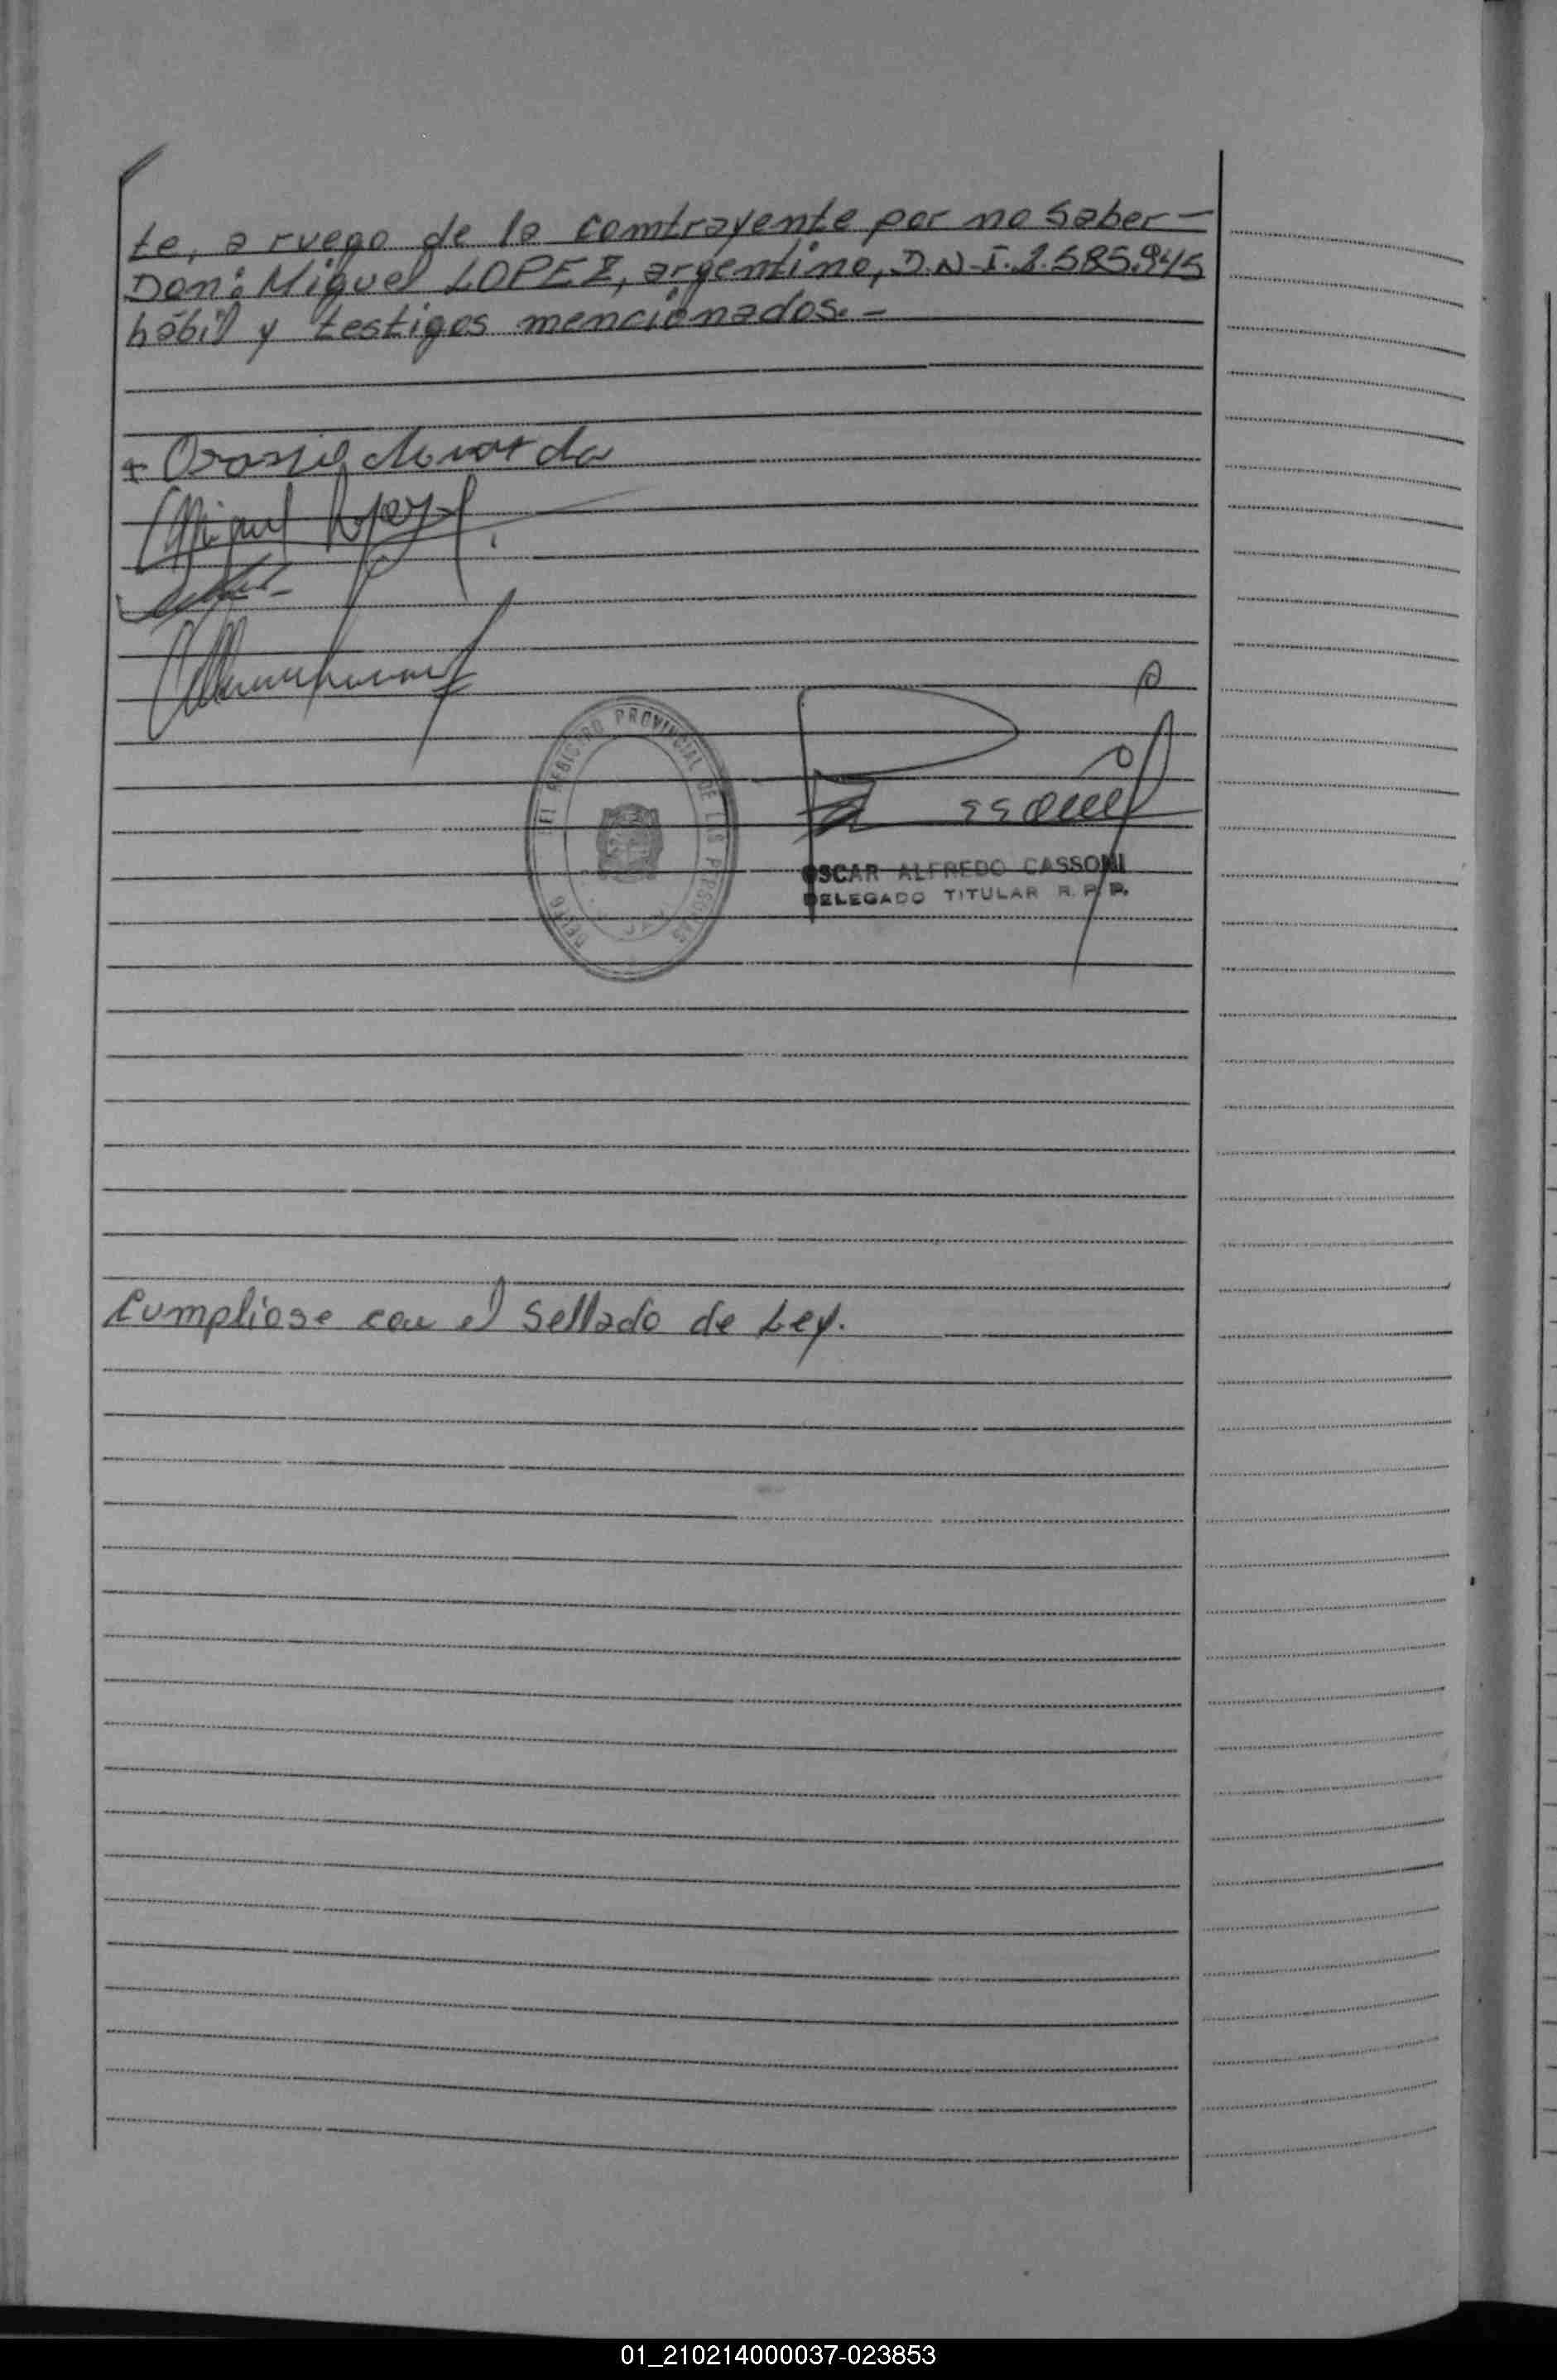 te, a ruego de la contrayente por no saber—
Don: Miguel LOPEZ, argentino, D.N.I. 2.585.945
hábil y testigos mencionados.—
Miguel Lopez
REGISTRO PROVINCIAL DE LAS PERSONAS
OSCAR ALFREDO CASSONI
DELEGADO TITULAR R. P. P.
Cumpliose con el Sellado de Ley.
01_210214000037-023853